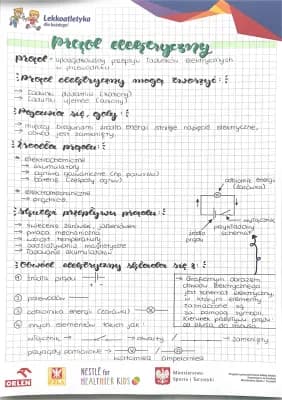 Lekkoatletyka
dla każdego!
Prąd elektryczny
Prąd - uporządkowany przepływ ładunków elektrycznych
w przewodniku.
Prąd elektryczny mogą tworzyć:
→ ładunki dodatnie (kationy)
→ ładunki ujemne (aniony)
Pojawia się, gdy:
→ między biegunami źródła energii istnieje napięcie elektryczne,
obwód jest zamknięty.
Źródła prądu:
elektrochemiczne
→ akumulatory
→ ogniwa galwaniczne (np. paluszki)
→ baterie (zespoły ogniw)
elektromechaniczne
→ prądnice
odbiornik energii
(żarówka)
wyłącznik
źródło
prądu
przykładowy
schemat
Skutki przepływu prądu:
→ świecenie żarówek, jarzeniówek
→ praca mechaniczna
→ wzrost temperatury
→ oddziaływania magnetyczne
→ ładowanie akumulatorów
Obwód elektryczny składa się z:
① źródła prądu
② przewodów
③ odbiornika energii (żarówki)
④ innych elementów takich jak:
Graficznym obrazem
obwodu elektrycznego
jest schemat elektryczny,
w którym elementy
zaznaczone są
za pomocą symboli.
Kierunek przepływu prądu
od plusa do minusa
włącznik, → otwarty / → zamknięty
przyrządy pomiarowe → V A
woltomierz amperomierz
ORLEN
PZLA
NESTLÉ for
HEALTHIER KIDS
Ministerstwo
Sportu i Turystyki